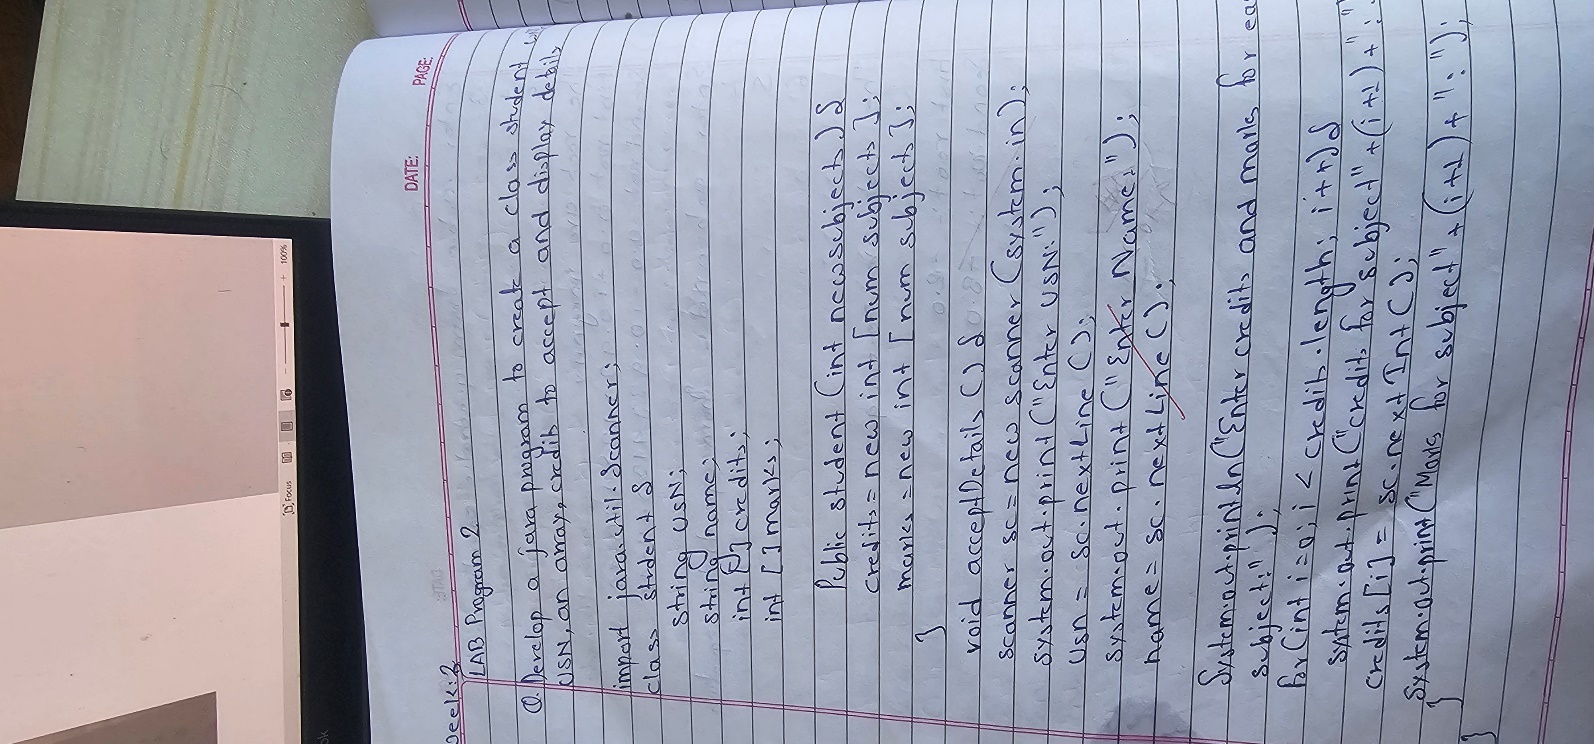 DATE:
PAGE:
Week:2
LAB Program 2
Q. Develop a java program to create a class student
USN, an array credits to accept and display details
import java.util.Scanner;
class student {
string USN;
string name;
int [] credits;
int [] marks;
Public student (int newsubjects) {
credits = new int [num subjects];
marks = new int [num subject];
}
void acceptDetails () {
scanner sc = new scanner (system.in);
system.out.print ("Enter USN:");
USN = sc.nextLine ();
system.out.print ("Enter Name:");
name = sc.nextLine ();
System.out.println ("Enter credits and marks for
subject:");
for (int i = 0; i < credits.length; i++) {
system.out.print ("credits for subject" + (i+1) + ":
credits [i] = sc.next Int ();
system.out.print ("Marks for subject" + (i+1) + ":");
}
}
Focus
100%